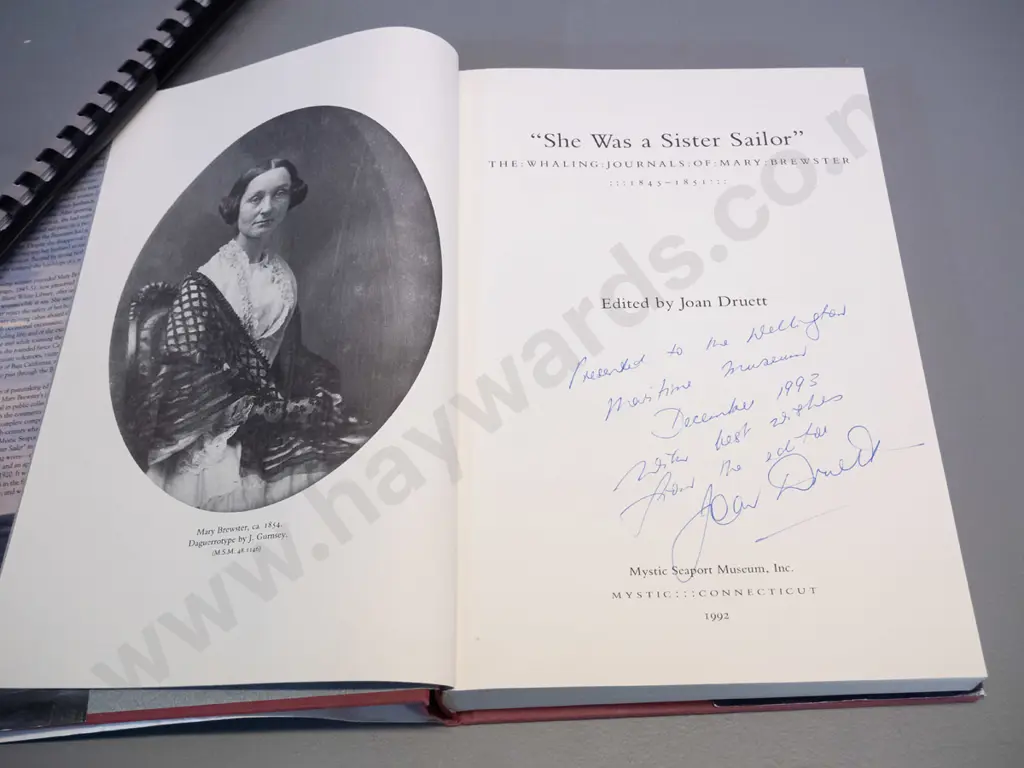 Mary Brewster, ca. 1854.
Daguerrotype by J. Gurnsey.
(M.S.M. 48.1146)
“She Was a Sister Sailor”
THE:WHALING:JOURNALS:OF:MARY:BREWSTER
:::1845–1851:::
Edited by Joan Druett
Presented to the Wellington
Maritime Museum
December 1993
With best wishes
from the editor
Joan Druett
Mystic Seaport Museum, Inc.
MYSTIC:::CONNECTICUT
1992
www.haywards.co.n